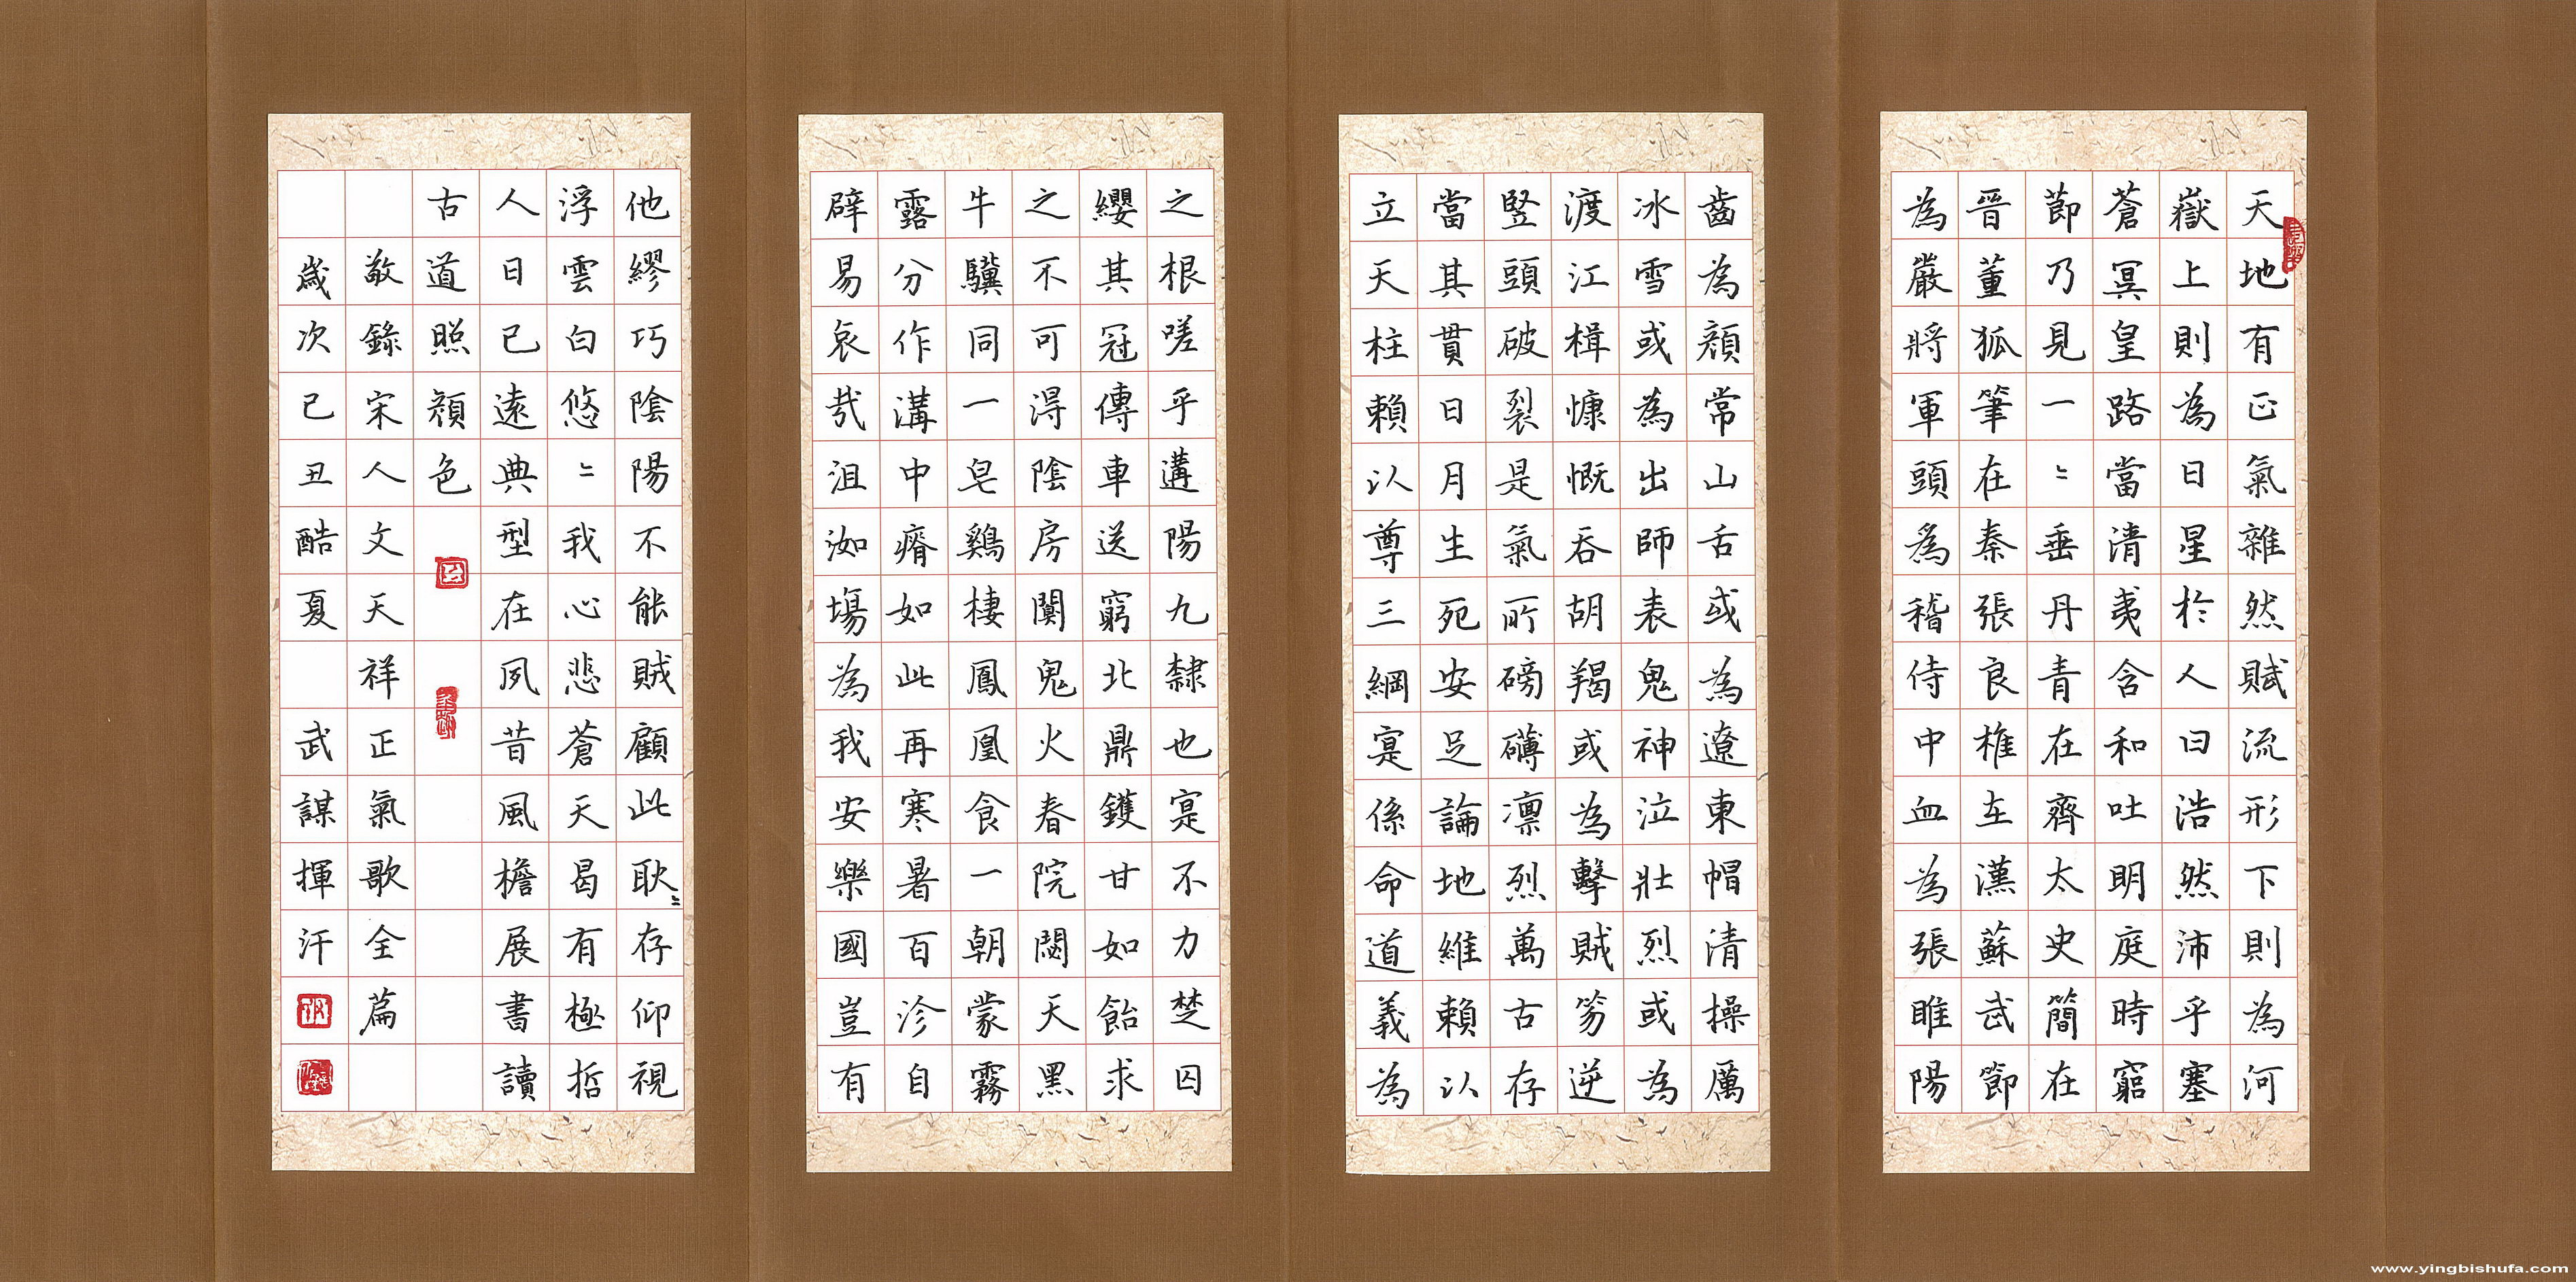 天地有正氣雜然賦流形下則為河
嶽上則為日星於人曰浩然沛乎塞
蒼冥皇路當清夷含和吐明庭時窮
節乃見一〻垂丹青在齊太史簡在
晉董狐筆在秦張良椎在漢蘇武節
為嚴將軍頭為嵇侍中血為張睢陽
齒為顏常山舌或為遼東帽清操厲
冰雪或為出師表鬼神泣壯烈或為
渡江楫慷慨吞胡羯或為擊賊笏逆
豎頭破裂是氣所磅礴凛烈萬古存
當其貫日月生死安足論地維賴以
立天柱賴以尊三綱寔係命道義為
之根嗟乎遘陽九隸也寔不力楚囚
纓其冠傳車送窮北鼎鑊甘如飴求
之不可得陰房闃鬼火春院閟天黑
牛驥同一皂鷄棲鳳凰食一朝蒙霧
露分作溝中瘠如此再寒暑百沴自
辟易哀哉沮洳場為我安樂國豈有
他繆巧陰陽不能賊顧此耿〻存仰視
浮雲白悠〻我心悲蒼天曷有極哲
人日已遠典型在夙昔風檐展書讀
古道照顏色
敬錄宋人文天祥正氣歌全篇
歲次己丑酷夏 武謀揮汗
www.yingbishufa.com